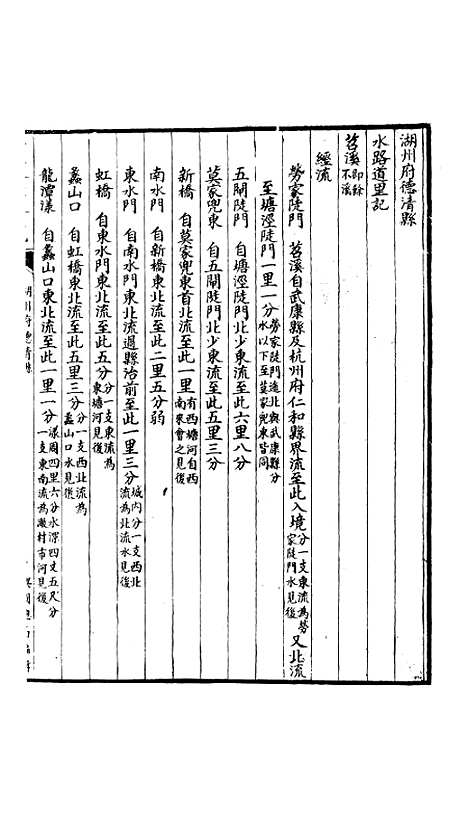 湖州府德清縣
水路道里記
苕溪即餘不溪
經流
勞家陡門　苕溪自武康縣及杭州府仁和縣界流至此入境分一支東流為勞家陡門水見後又北流
至塘涇陡門一里一分勞家陡門迤北與武康縣分水以下至莫家兜東皆同
五閘陡門　自塘涇陡門北少東流至此六里八分
莫家兜東　自五閘陡門北少東流至此五里三分
新橋　自莫家兜東首北流至此一里有西塘河自西南來會之見後
南水門　自新橋東北流至此二里五分弱
東水門　自南水門東北流過縣治前至此一里三分城內分一支西北流為北流水見後
虹橋　自東水門東北流至此五分分一支東流為東塘河見後
蠡山口　自虹橋東北流至此五里三分分一支西北流為蠡山口水見後
龍潭漾　自蠡山口東北流至此一里一分漾周四里六分水深四丈五尺分一支東南流為漵村市河見後